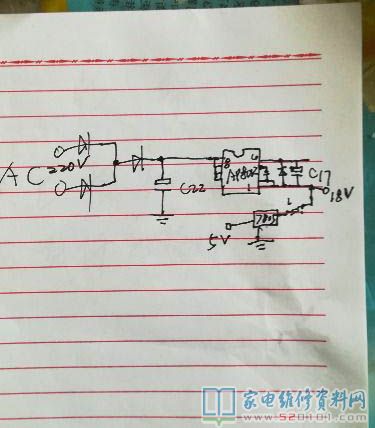 AC 220V
C22
8
4
1
C17
18V
7805
5V
家电维修资料网
www.520101.com